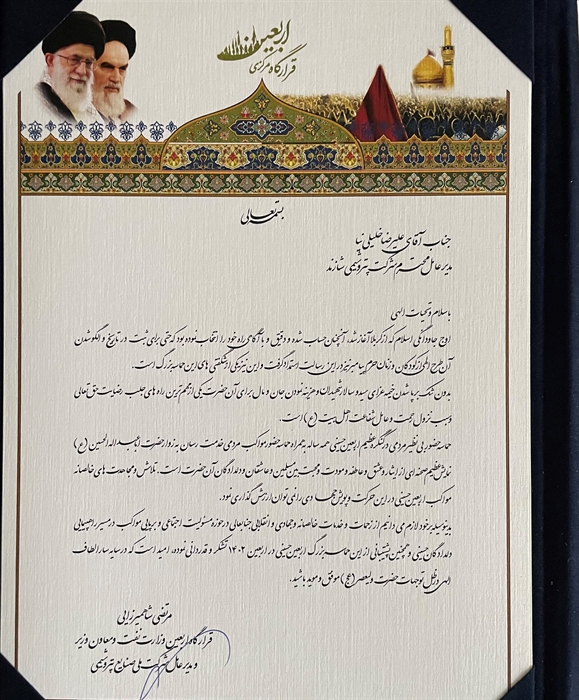 اربعین
قرارگاه مرکزی
بسمه تعالی
جناب آقای علیرضا خلیلی نیا
مدیرعامل محترم شرکت پتروشیمی شازند
باسلام وتحیات الهی
اوج جاودانگی اسلام که از کربلا آغاز شد، آنچنان حساب شده و دقیق و با آگاهی راه خود را انتخاب نموده بود که حتی برای ثبت در تاریخ و الگو شدن
آن طرح الهی از کودکان و زنان حرم پیامبر نیز در این رسالت استمداد گرفت و این نیز یکی از شگفتی های این حماسه بزرگ است.
بدون شک برپا شدن خیمه عزای سید و سالار شهیدان و هزینه نمودن جان و مال برای آن حضرت یکی از مهم ترین راه های جلب رضایت حق تعالی
و سبب نزول رحمت و عامل شفاعت اهل بیت (ع) است.
حماسه حضور بی نظیر مردمی در کنگره عظیم اربعین حسینی همه ساله به همراه حضور مواکب مردمی خدمت رسان به زوار حضرت اباعبدالله الحسین (ع)
نمایش عظیم صحنه ای از ایثار و عشق و عاطفه و مودت و محبت بین مسلمین و عاشقان و دلدادگان آن حضرت است. تلاش و مجاهدت های خالصانه
مواکب اربعین حسینی در این حرکت و پویش جهادی را نمی توان ارزش گذاری نود.
بدینوسیله بر خود لازم می دانیم از زحمات و خدمات خالصانه و جهادی و انقلابی جنابعالی در حوزه مسئولیت اجتماعی و برپایی مواکب در مسیر راهپیمایی
دلدادگان حسینی و همچنین پشتیبانی از این حماسه بزرگ اربعین حسینی در اربعین ۱۴۰۲ تشکر و قدردانی نموده، امید است که در سایه سار الطاف
الهی در ظل توجهات حضرت ولیعصر (عج) موفق و موید باشید.
مرتضی شاهمیرزایی
قرارگاه اربعین وزارت نفت و معاون وزیر
و مدیرعامل شرکت ملی صنایع پتروشیمی